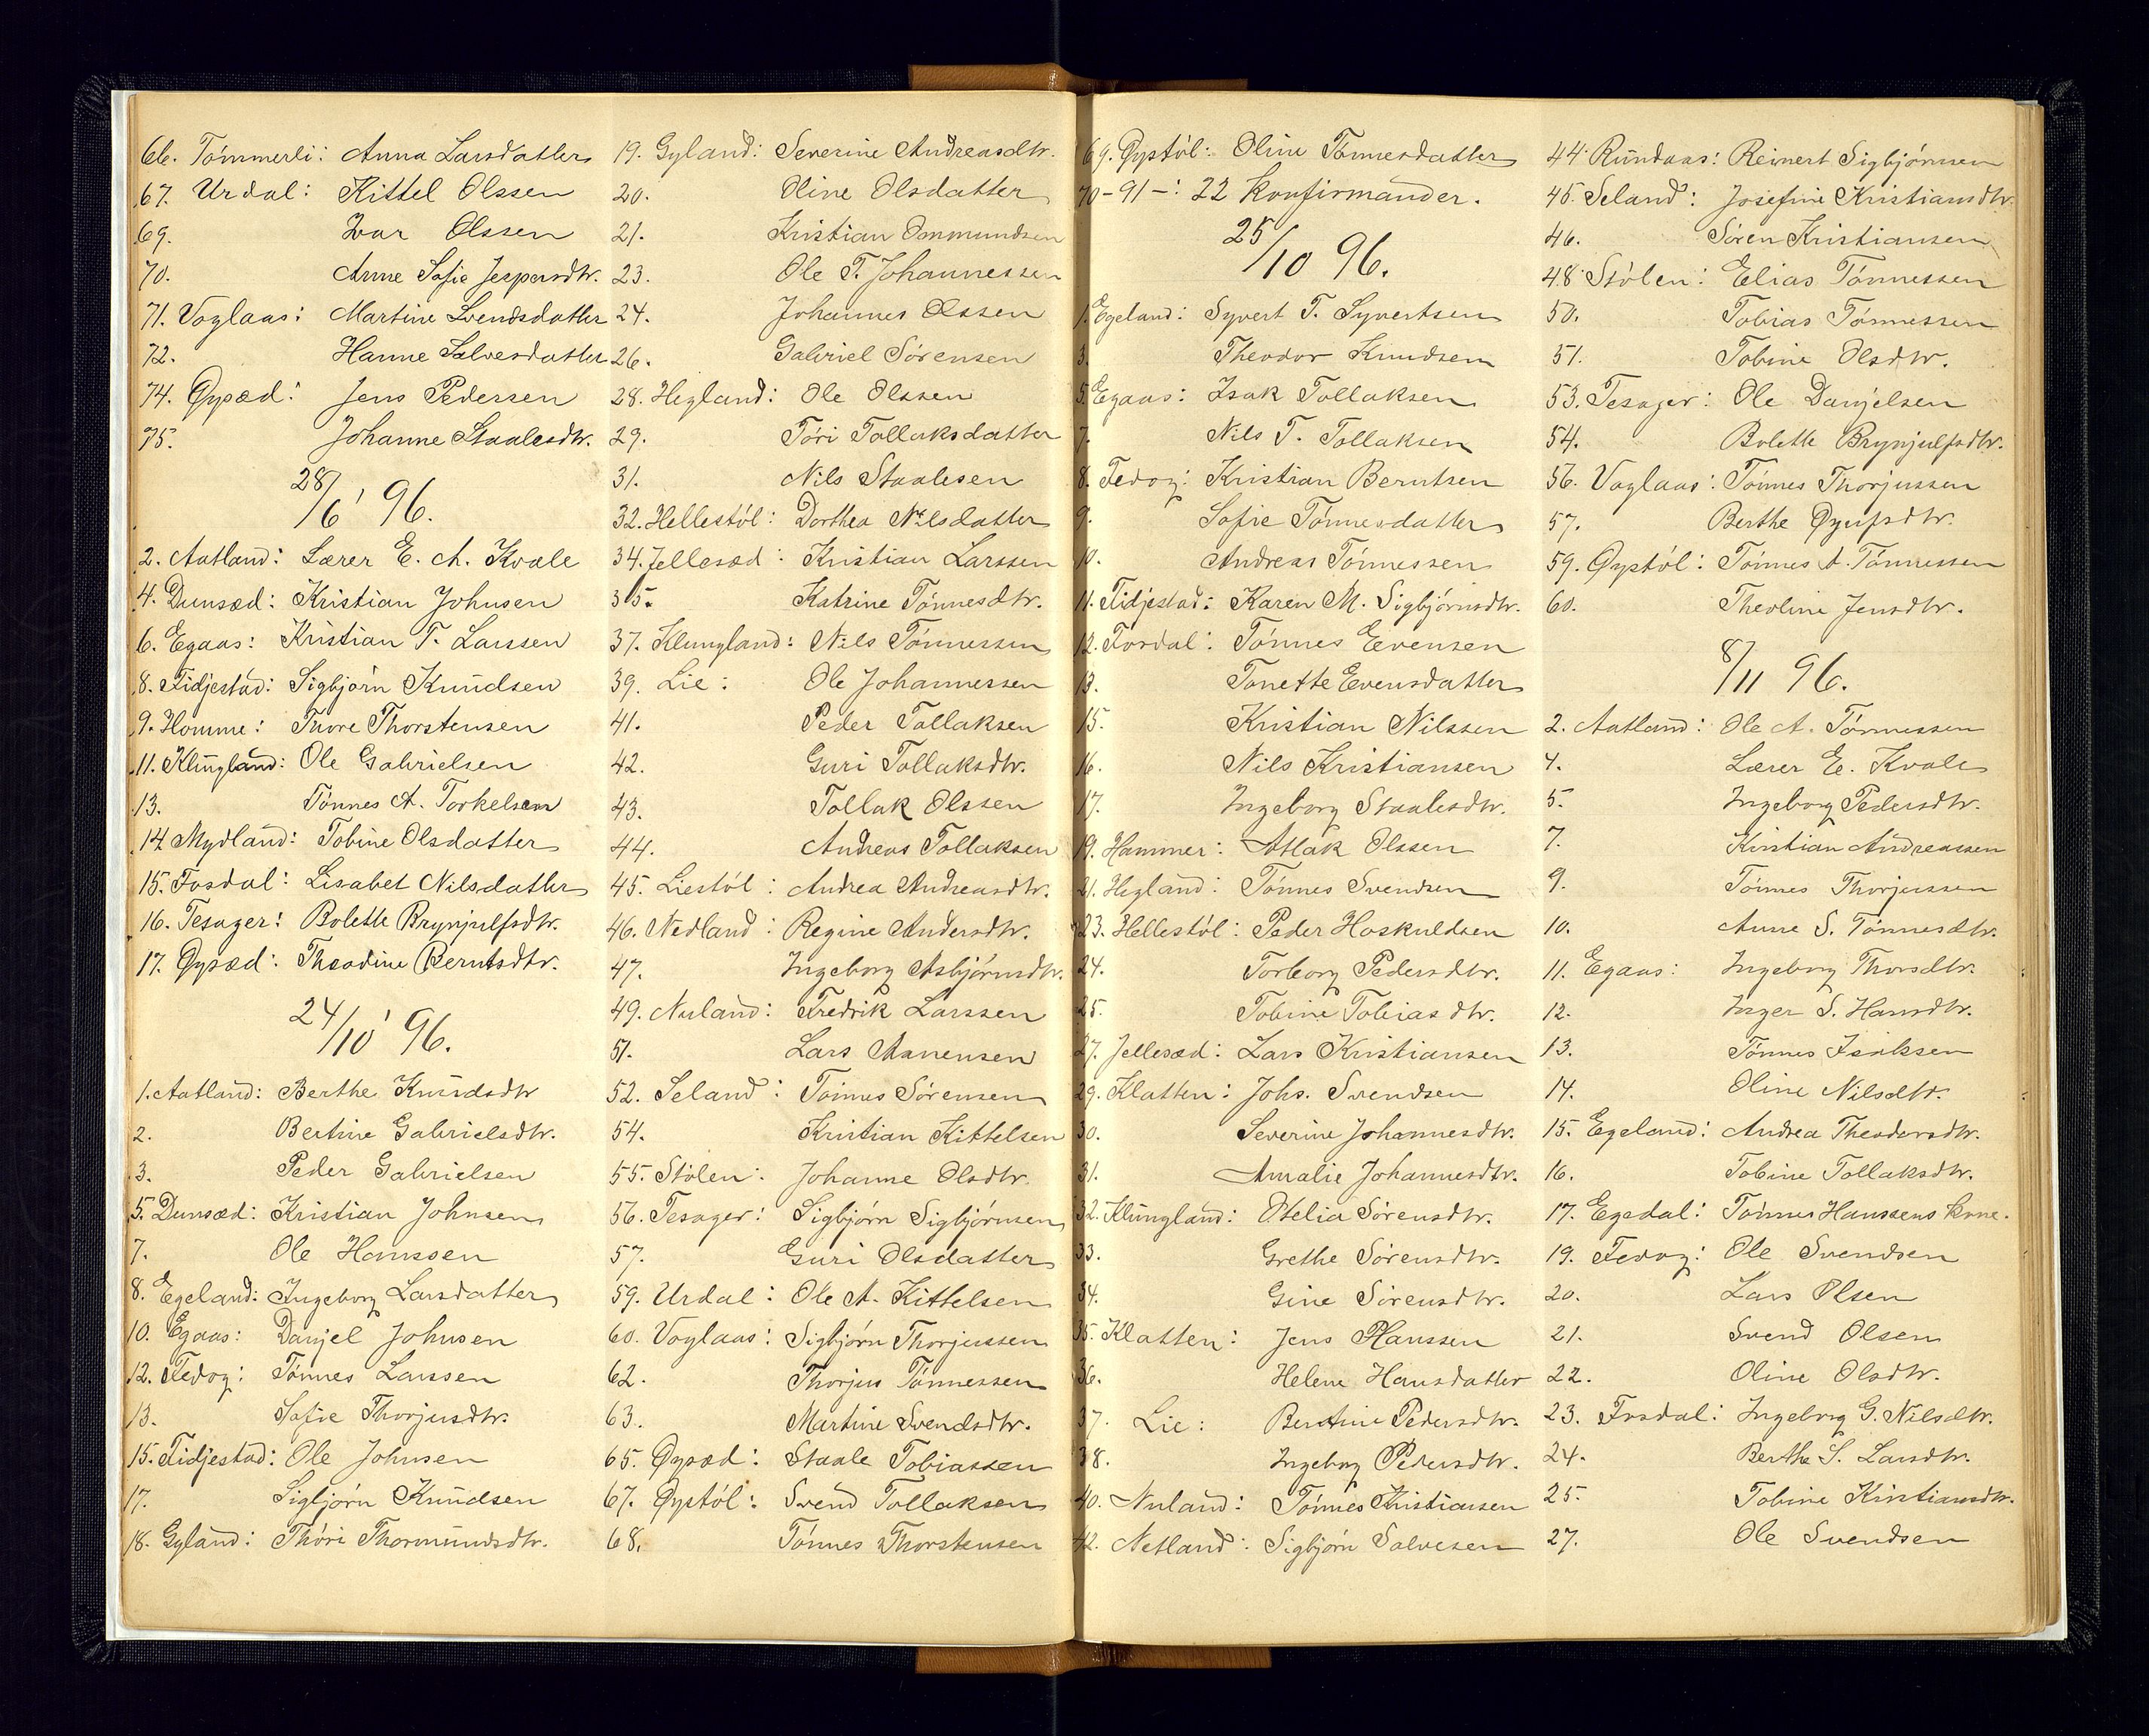 66. Tømmerli: Anna Larsdatter
67. Urdal: Kittel Olssen
69. Ivar Olssen
70. Anne Sofie Jespersdtr.
71. Voglaas: Martine Svendsdatter
72. Hanne Salvesdatter
74. Øysæd: Jens Pedersen
75. Johanne Staalesdtr.
28/6 96.
2. Aatland: Lærer E. A. Kvale
4. Dunsæd: Kristian Johnsen
6. Egaas: Kristian T. Larssen
8. Fidjestad: Sigbjørn Knudsen
9. Homme: Thore Thorstensen
11. Klungland: Ole Gabrielsen
13. Tønnes A. Torkelsen
14 Mydland: Tobine Olsdatter
15. Fosdal: Lisabet Nilsdatter
16. Tesager: Bolette Brynjulfsdtr.
17. Øysæd: Theodine Berntsdtr.
24/10 96.
1. Aatland: Berthe Knudsdtr
2. Bertine Gabrielsdtr.
3. Peder Gabrielsen
5. Dunsæd: Kristian Johnsen
7. Ole Hanssen
8. Egeland: Ingeborg Larsdatter
10. Egaas: Danjel Johnsen
12. Fedog: Tønnes Larssen
13. Sofie Thorjusdtr.
15. Fidjestad: Ole Johnsen
17. Sigbjørn Knudsen
18. Gyland: Thöri Thormundsdtr.
19. Gyland: Severine Andreasdtr.
20. Oline Olsdatter
21. Kristian Ommundsen
23. Ole T. Johannessen
24. Johannes Olssen
26. Gabriel Sørensen
28. Hegland: Ole Olssen
29. Töri Tollaksdatter
31. Nils Staalesen
32. Hellestøl: Dorthea Nilsdatter
34. Jellesæd: Kristian Larssen
35. Katrine Tønnesdtr.
37. Klungland: Nils Tønnessen
39. Lie: Ole Johannessen
41. Peder Tollaksen
42. Guri Tollaksdtr.
43. Tollak Olssen
44. Andreas Tollaksen
45. Liestøl: Andrea Andreasdtr.
46. Nedland: Regine Andersdtr.
47. Ingeborg Asbjørnsdtr.
49. Nuland: Fredrik Larssen
51. Lars Aanensen
52. Seland: Tønnes Sørensen
54. Kristian Kittelsen
55. Stølen: Johanne Olsdtr.
56. Tesager: Sigbjørn Sigbjørnsen
57. Guri Olsdatter
59. Urdal: Ole A. Kittelsen
60. Voglaas: Sigbjørn Thorjussen
62. Thorjus Tønnessen
63. Martine Svendsdtr.
65. Øysæd: Staale Tobiassen
67. Øystøl: Svend Tollaksen
68. Tønnes Thorstensen
69. Øystøl: Oline Tønnesdatter
70-91-: 22 Konfirmander.
25/10 96.
1. Egeland: Syvert T. Syvertsen
3. Theodor Knudsen
5. Egaas: Isak Tollaksen
7. Nils T. Tollaksen
8. Fedog: Kristian Berntsen
9. Sofie Tønnesdatter
10. Andreas Tønnessen
11. Fidjestad: Karen M. Sigbjørnsdtr.
12. Fosdal: Tønnes Evensen
13. Tonette Evensdatter
15. Kristian Nilssen
16. Nils Kristiansen
17. Ingeborg Staalesdtr.
19. Hammer: Atlak Olssen
21. Hegland: Tønnes Svendsen
23. Hellestøl: Peder Hoskuldsen
24. Torborg Pedersdtr.
25. Tobine Tobiasdtr.
27. Jellesæd: Lars Kristiansen
29. Klatten: Johs. Svendsen
30. Severine Johannesdtr.
31. Amalie Johannesdtr.
32. Klungland: Otelia Sørensdtr.
33. Grethe Sørensdtr.
34. Gine Sørensdtr.
35. Klatten: Jens Hanssen
36. Helene Hansdatter
37. Lie: Bertine Pedersdtr.
38. Ingeborg Pedersdtr.
40. Nuland: Tønnes Kristiansen
42. Netland: Sigbjørn Salvesen
44. Rundaas: Reinert Sigbjørnsen
45. Seland: Josefine Kristiansdtr.
46. Søren Kristiansen
48. Stølen: Elias Tønnessen
50. Tobias Tønnessen
51. Tobine Olsdtr.
53. Tesager: Ole Danjelsen
54. Bolette Brynjulfsdtr.
56. Voglaas: Tønnes Thorjussen
57. Berthe Øyufsdtr.
59. Øystøl: Tønnes A. Tønnessen
60. Theoline Jensdtr.
8/11 96.
2. Aatland: Ole A. Tønnessen
4. Lærer E. Kvale
5. Ingeborg Pedersdtr.
7. Kristian Andreassen
9. Tønnes Thorjussen
10. Anne S. Tønnesdtr.
11. Egaas: Ingeborg Thorsdtr.
12. Inger S. Hansdtr.
13. Tønnes Isaksen
14. Oline Nilsdtr.
15. Egeland: Andrea Theodorsdtr.
16. Tobine Tollaksdtr.
17. Egsdal: Tønnes Hanssens kone.
19. Fedog: Ole Svendsen
20. Lars Olsen
21. Svend Olsen
22. Oline Olsdtr.
23. Fosdal: Ingeborg G. Nilsdtr.
24. Berthe S. Larsdtr.
25. Tobine Kristiansdtr.
27. Ole Svendsen